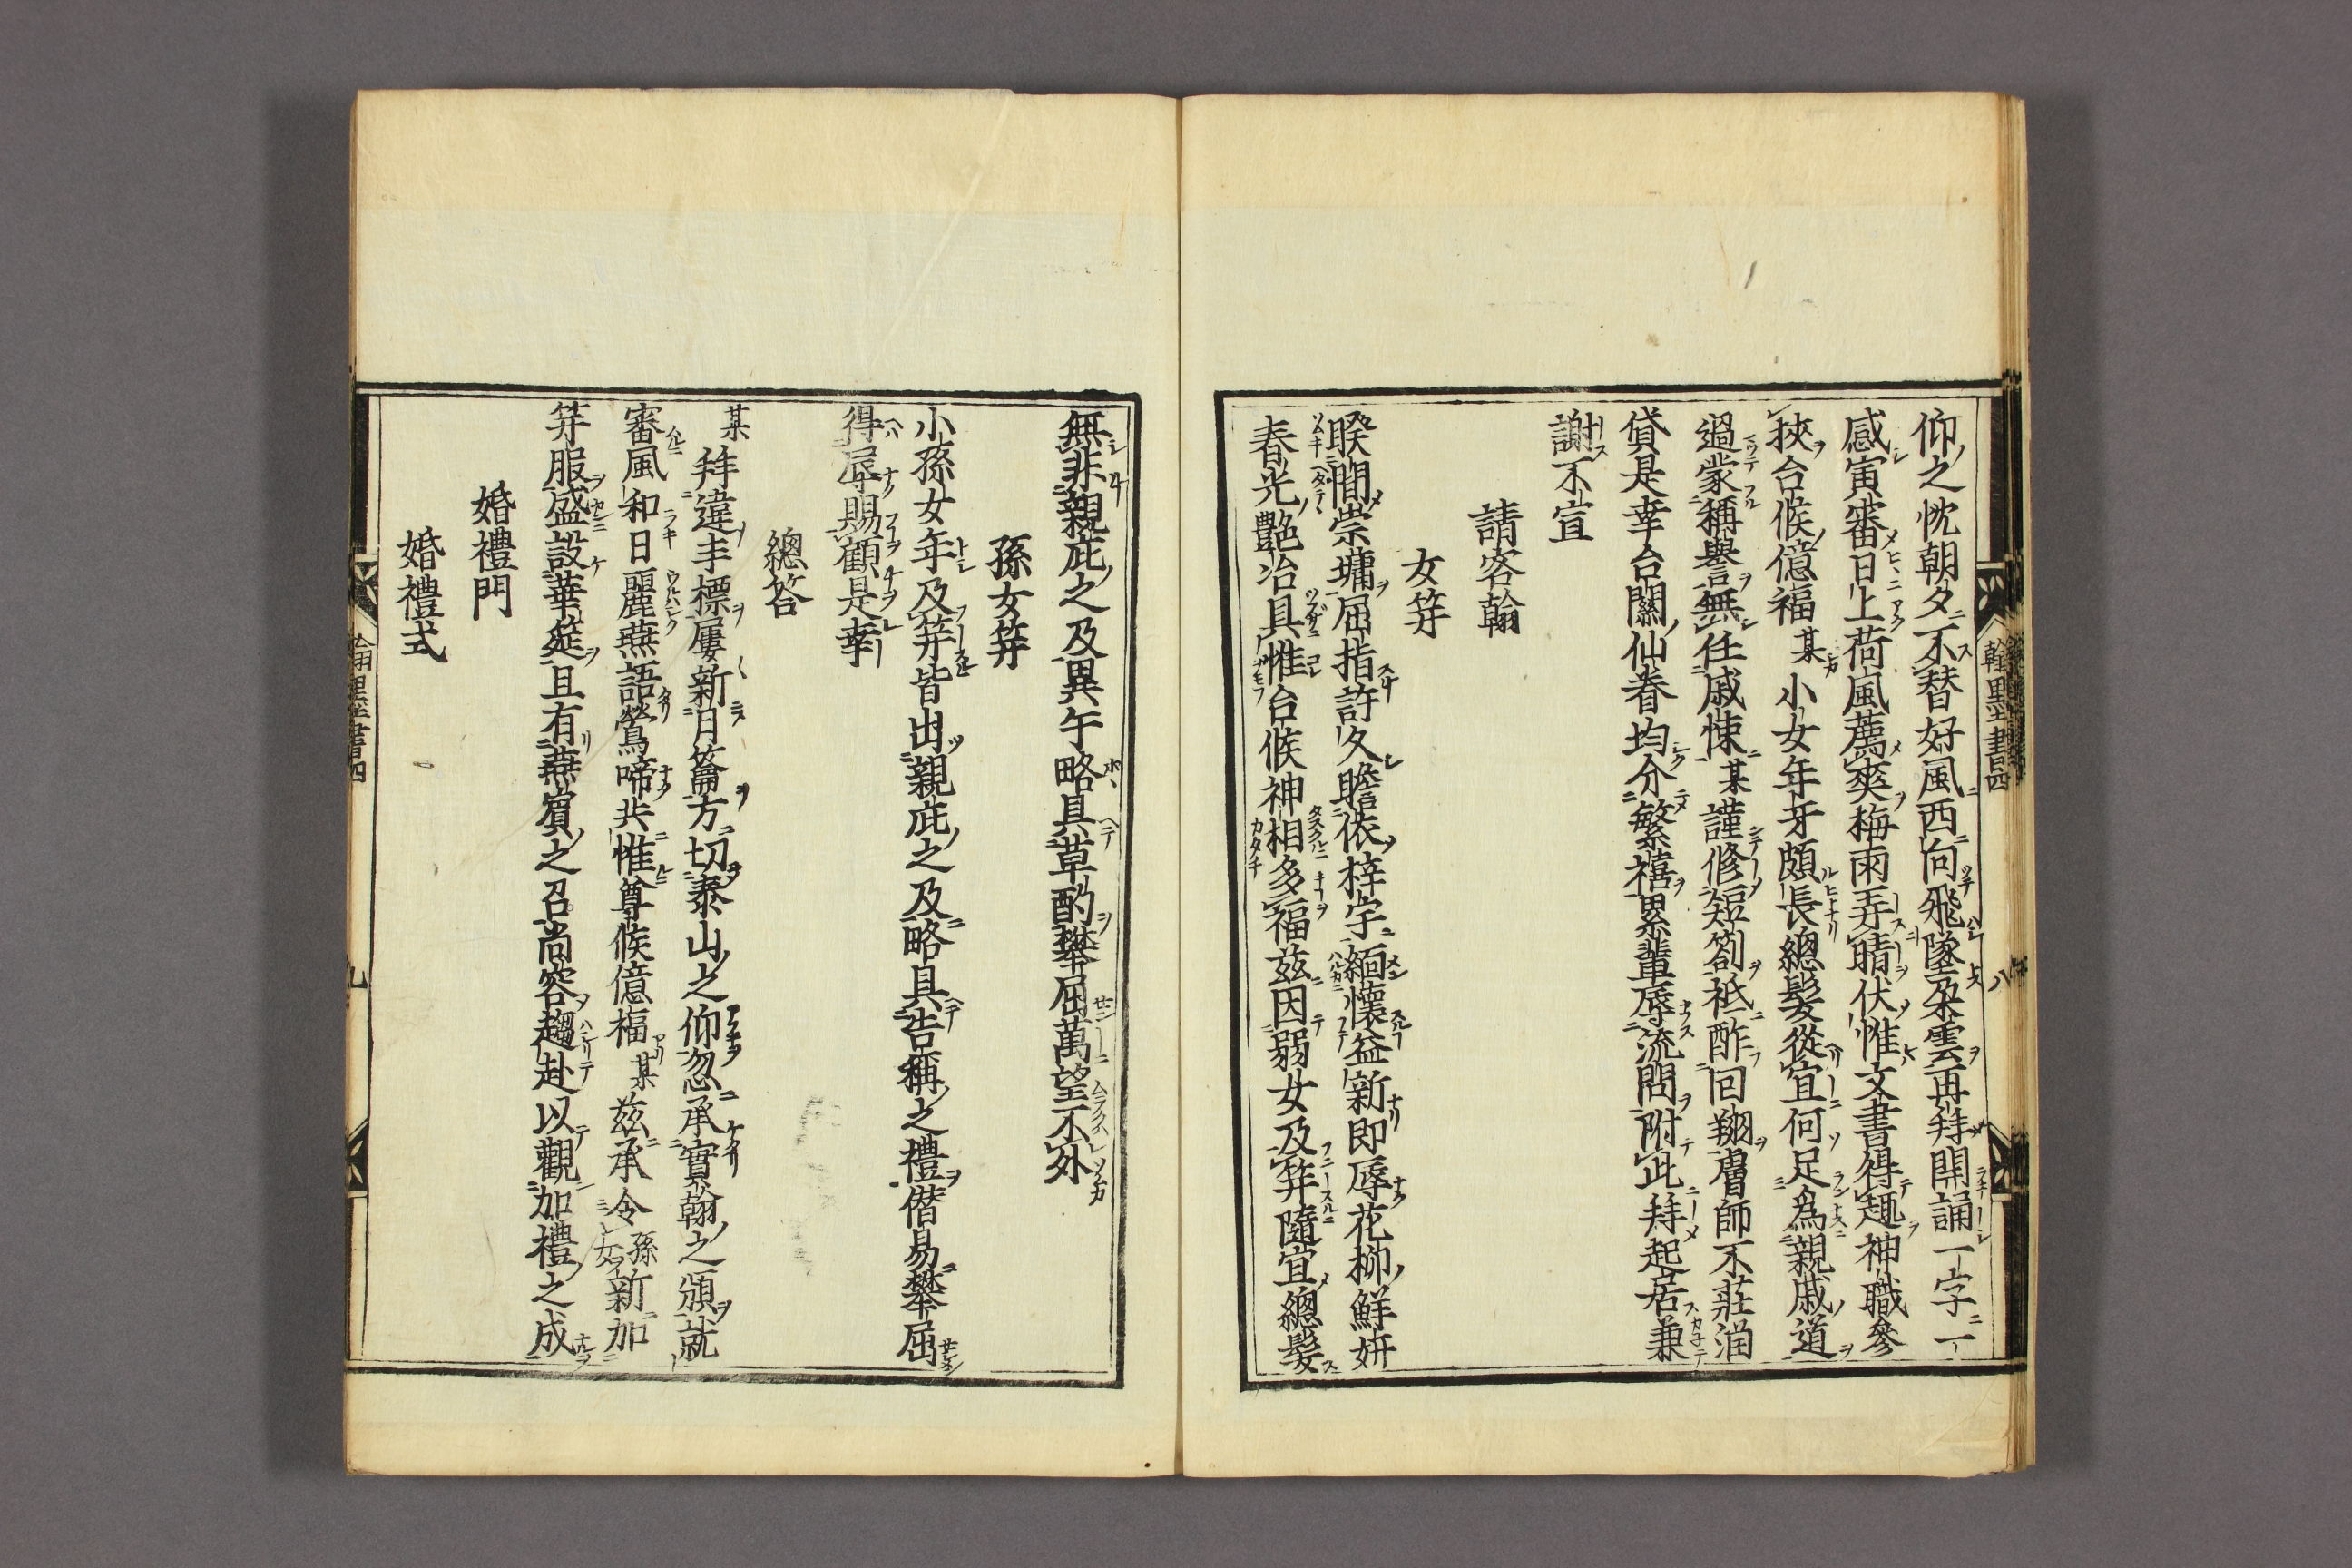 仰之忱朝夕不替好風西向飛墜朶雲再拜開誦一字一
感寅審日上荷風薦爽梅雨弄晴伏惟文書得趣神職參
挾台候億福某小女年牙頗長總髮從宜何足爲親戚道
過蒙稱譽無任戚悚某謹修短劄祗酢回翔膚師不莊潤
貸是幸台闕仙眷均介繁禧累輩辱流問附此拜起居兼
謝不宣
請客翰
女笄
睽間崇墉屈指許久瞻依梓宇緬懷益新即辱花柳鮮妍
春光艷冶具惟台候神相多福茲因弱女及笄隨宜總髮
無非親庇之及異午略具草酌攀屈萬望不外
孫女笄
小孫女年及笄皆出親庇之及略具告稱之禮僭易攀屈
得辱賜顧是幸
總答
某拜違丰標屢新月籥方切泰山之仰忽承寶翰之頒就
審風和日麗燕語鶯啼共惟尊候億福某茲承令孫女新加
笄服盛設華筵且有燕賓之召尚容趨赴以觀加禮之成
婚禮門
婚禮式
翰墨書四
八
翰墨書四
九